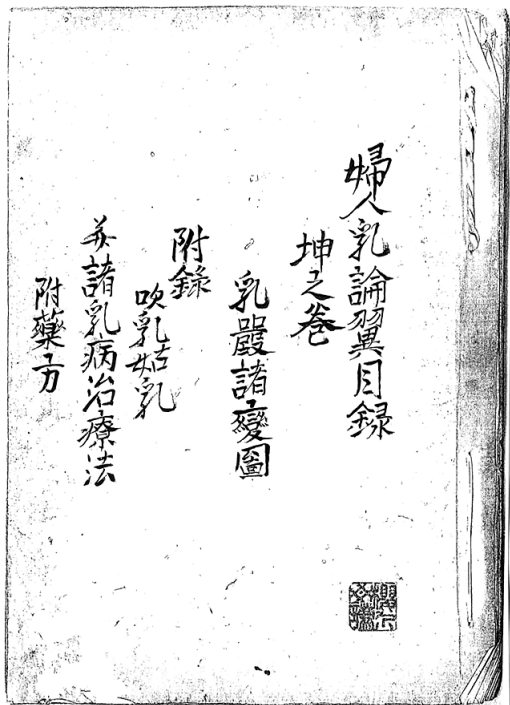 婦人乳論翼目錄
坤之卷
乳巖諸變圖
附錄
吹乳妬乳
并諸乳病治療法
附藥方